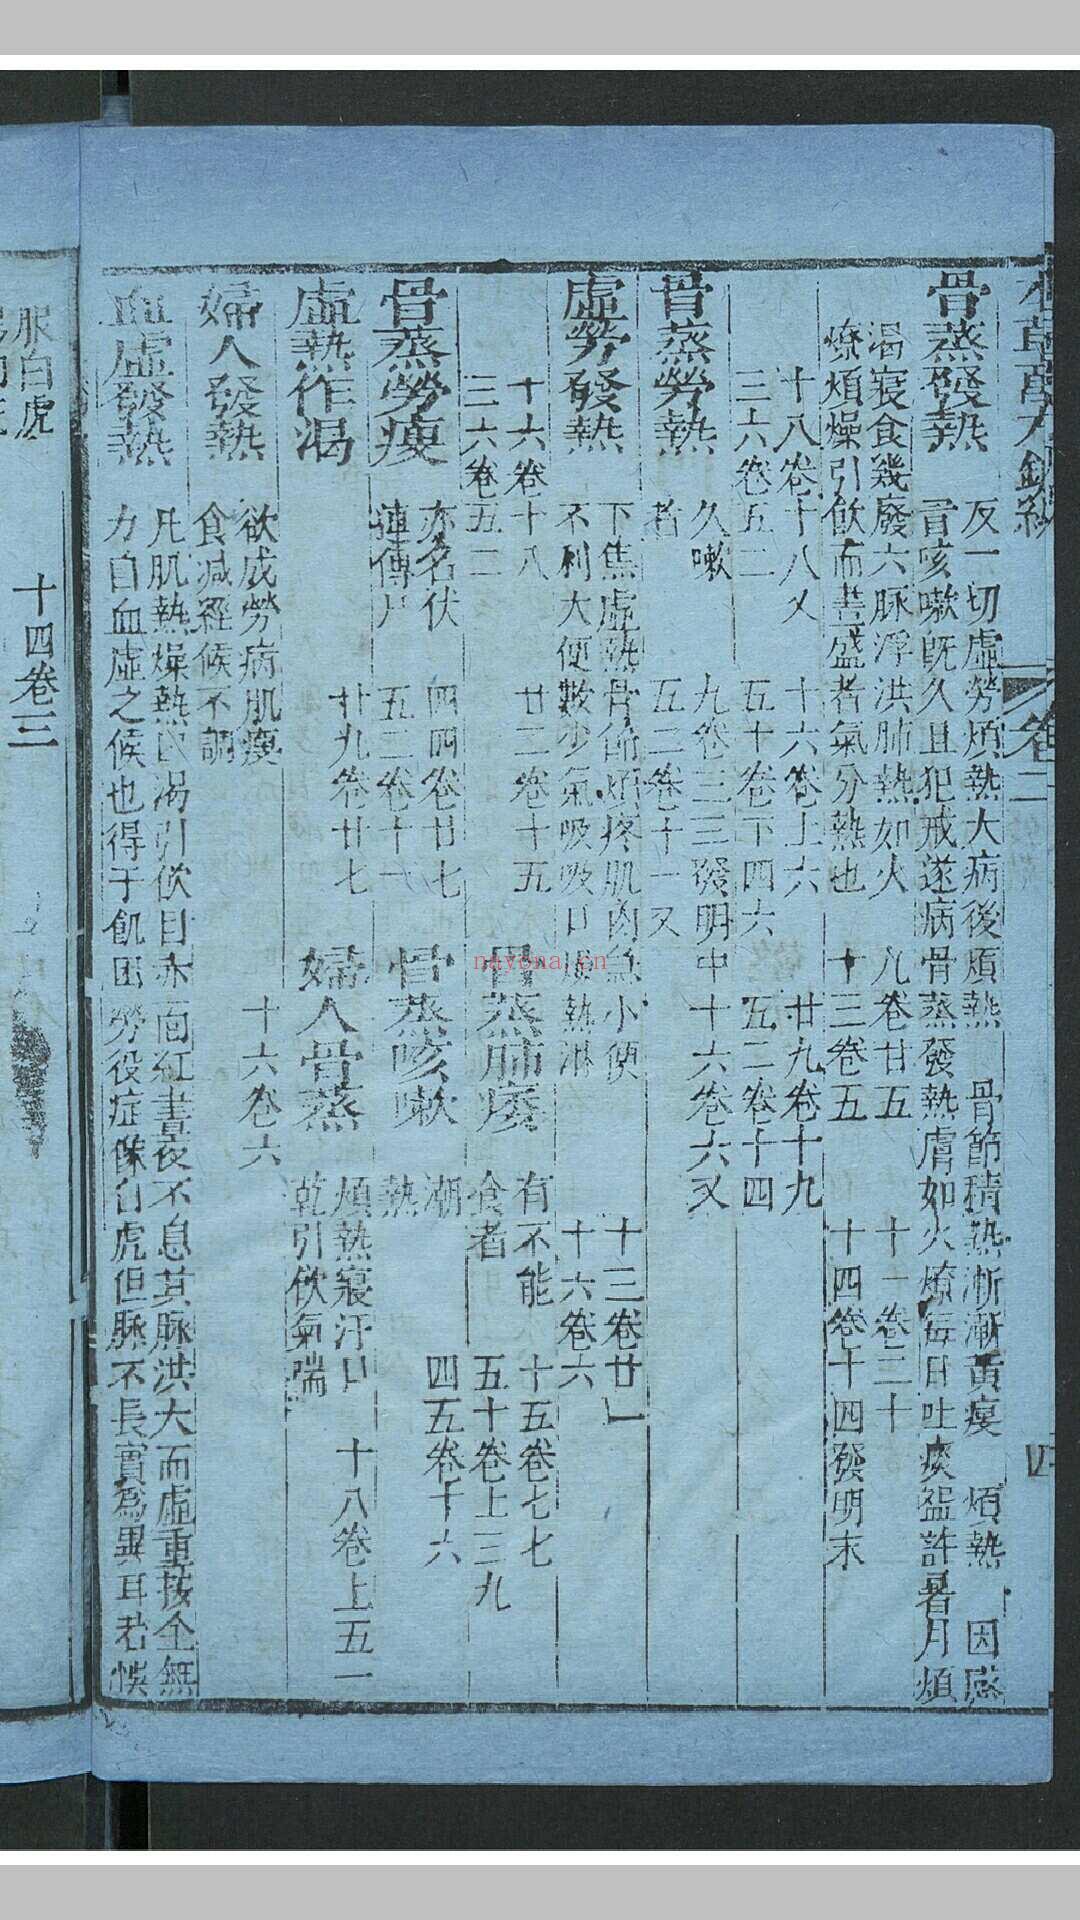 卷二
四
骨蒸發熱
及一切虛勞煩熱大病後煩熱　骨節積熱漸漸黃瘦　煩熱　因感
冒咳嗽既久且犯戒遂病骨蒸發熱膚如火燎每日吐痰盌許暑月煩
渴寢食幾廢六脉浮洪肺熱如火　九卷廿五　十一卷二十
燎煩燥引飲而晝盛者氣分熱也　十三卷五　十四卷十四發明末
十八卷十八又　十六卷上六　廿九卷十九
三六卷五二　五十卷下四六　五二卷十四
骨蒸勞熱
久嗽　九卷三三發明中十六卷六又
者　五二卷十一又
虛勞發熱
下焦虛熱骨節煩疼肌肉急小便　十三卷廿一
不利大便數少氣吸吸口燥熱淋　十六卷六
十六卷十八　廿二卷十五
三六卷五二
骨蒸肺痿
有不能　十五卷七七
食者　五十卷上三九
骨蒸勞瘦
亦名伏　四四卷廿七
連傳尸　五二卷十一
骨蒸咳嗽
潮　四五卷十六
熱
虛熱作渴
廿九卷廿七
婦人骨蒸
煩熱寢汗口　十八卷上五一
乾引飲氣喘
婦人發熱
欲成勞病肌瘦　十六卷六
食減經候不調
血虛發熱
凡肌熱燥熱困渴引飲目赤面紅晝夜不息其脉洪大而虛重按全無
力自血虛之候也得于飢困勞役症像白虎但脉不長實爲異耳若悞
服白虎
十四卷三
nayona.cn